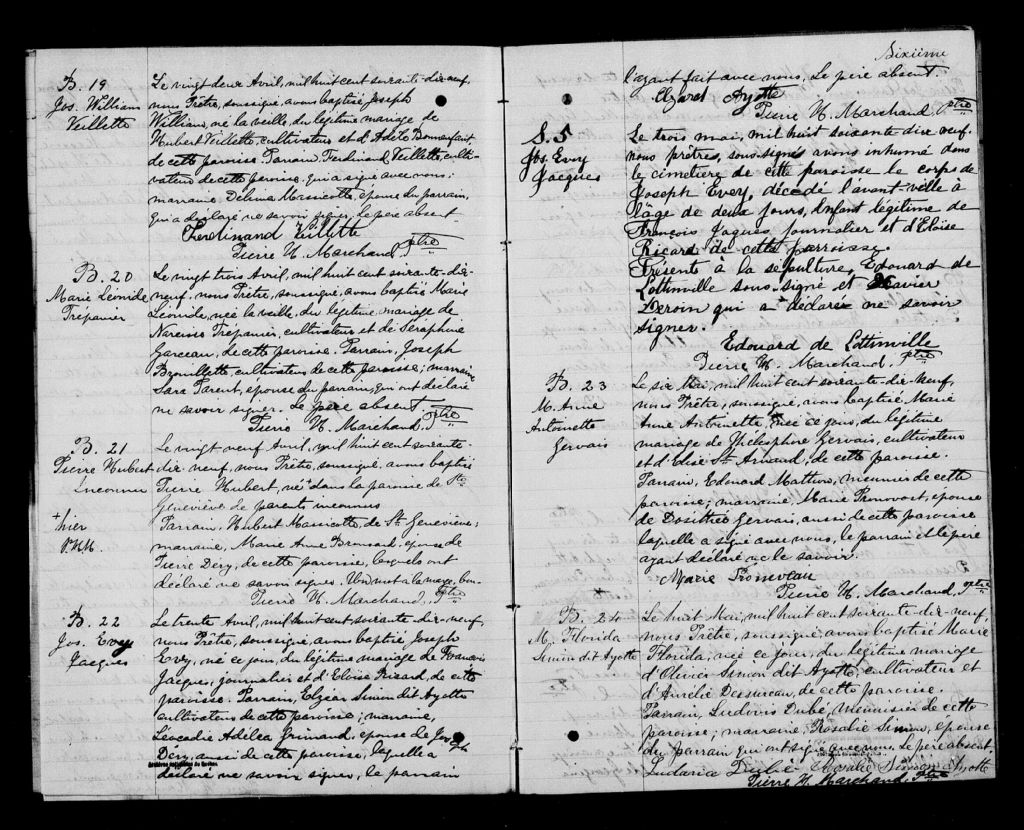 B. 19
Jos. William
Veillette
Le vingt deux Avril, mil huit cent soixante-dix-neuf,
nous Prêtre, soussigné, avons baptisé Joseph
William, né la veille, du légitime mariage de
Hubert Veillette, cultivateur et d'Adèle Bonnenfant,
de cette paroisse. Parrain, Ferdinand Veillette, culti-
vateur de cette paroisse, qui a signé avec nous;
marraine Delima Massicotte, épouse du parrain,
qui a déclaré ne savoir signer, le père absent
Ferdinand Veillette
Pierre H. Marchand, Ptre
B. 20
Marie Leonide
Trépanier
Le vingt trois Avril, mil huit cent soixante-dix-
neuf, nous Prêtre, soussigné, avons baptisé Marie
Léonide, née la veille, du légitime mariage de
Narcisse Trépanier, cultivateur et de Séraphine
Garceau, de cette paroisse. Parrain, Joseph
Brouillette, cultivateur de cette paroisse; marraine
Sara Parent, épouse du parrain, qui ont déclaré
ne savoir signer. Le père absent
Pierre H. Marchand, Ptre
B. 21
Pierre Hubert
inconnu
+ hier
P.H.M.
Le vingt neuf Avril, mil huit cent soixante-
dix-neuf, nous Prêtre, soussigné, avons baptisé
Pierre Hubert, né dans la paroisse de Ste
Geneviève de parents inconnus
Parrain, Hubert Massicotte, de St. Geneviève;
marraine, Marie Anne Brousard, épouse de
Pierre Déry, de cette paroisse, lesquels ont
déclaré ne savoir signer. Un mot a la marge, bon
Pierre H. Marchand, Ptre
B. 22
Jos. Evey
Jacques
Le trente Avril, mil huit cent soixante-dix-neuf,
nous Prêtre, soussigné, avons baptisé Joseph
Evey, né ce jour, du légitime mariage de François
Jacques, journalier et d'Eloïse Ricard, de cette
paroisse. Parrain, Elzéar Simon dit Ayotte
cultivateur de cette paroisse; marraine,
Léocadie Adélea Grimard, épouse de Joseph
Déry, aussi de cette paroisse, laquelle a
déclaré ne savoir signer, le parrain
Archives nationales du Québec
Sixième
l'ayant fait avec nous. Le père absent
Elzard Ayotte
Pierre H. Marchand, Ptre
S. 5
Jos. Evey
Jacques
Le trois mai, mil huit soixante dix neuf,
nous prêtres, sous-signés avons inhumé dans
le cimetière de cette paroisse le corps de
Joseph Evey, décédé l'avant veille à
l'âge de deux jours, Enfant légitime de
François Jaques journalier et d'Eloïse
Ricard de cette parroisse.
Présents à la sépulture, Edouard de
Lottinville sous-signé et Xavier
Deroin qui a déclaré ne savoir
signer.
Edouard de Lottinville
Pierre H. Marchand. Ptre
B. 23
M. Anne
Antoinette
Gervais
Le six Mai, mil huit cent soixante-dix-neuf,
nous Prêtre, soussigné, avons baptisé Marie
Anne Antoinette, née ce jour, du légitime
mariage de Théléophine Gervais, cultivateur
et d'Elise St. Arnaud, de cette paroisse.
Parrain, Edouard Matthon, meunier de cette
paroisse; marraine, Marie Pronovost, épouse
de Dosithée Gervais, aussi de cette paroisse
laquelle a signé avec nous, le parrain et le père
ayant déclaré ne le savoir.
Marie Proneveau
Pierre H. Marchand, Ptre
B. 24
M. Florida
Simon dit Ayotte
Le huit Mai, mil huit cent soixante-dix-neuf,
nous Prêtre, soussigné, avons baptisé Marie
Florida, née ce jour, du légitime mariage
d'Olivier Simon dit Ayotte, cultivateur et
d'Aurélie Dessureau, de cette paroisse.
Parrain, Ludovis Dubé, menuisier de cette
paroisse; marraine, Rosalie Simon, épouse
du parrain qui ont signé avec nous. Le père absent.
Dubé Rosalie Simon Ayotte
Pierre H. Marchand, Ptre